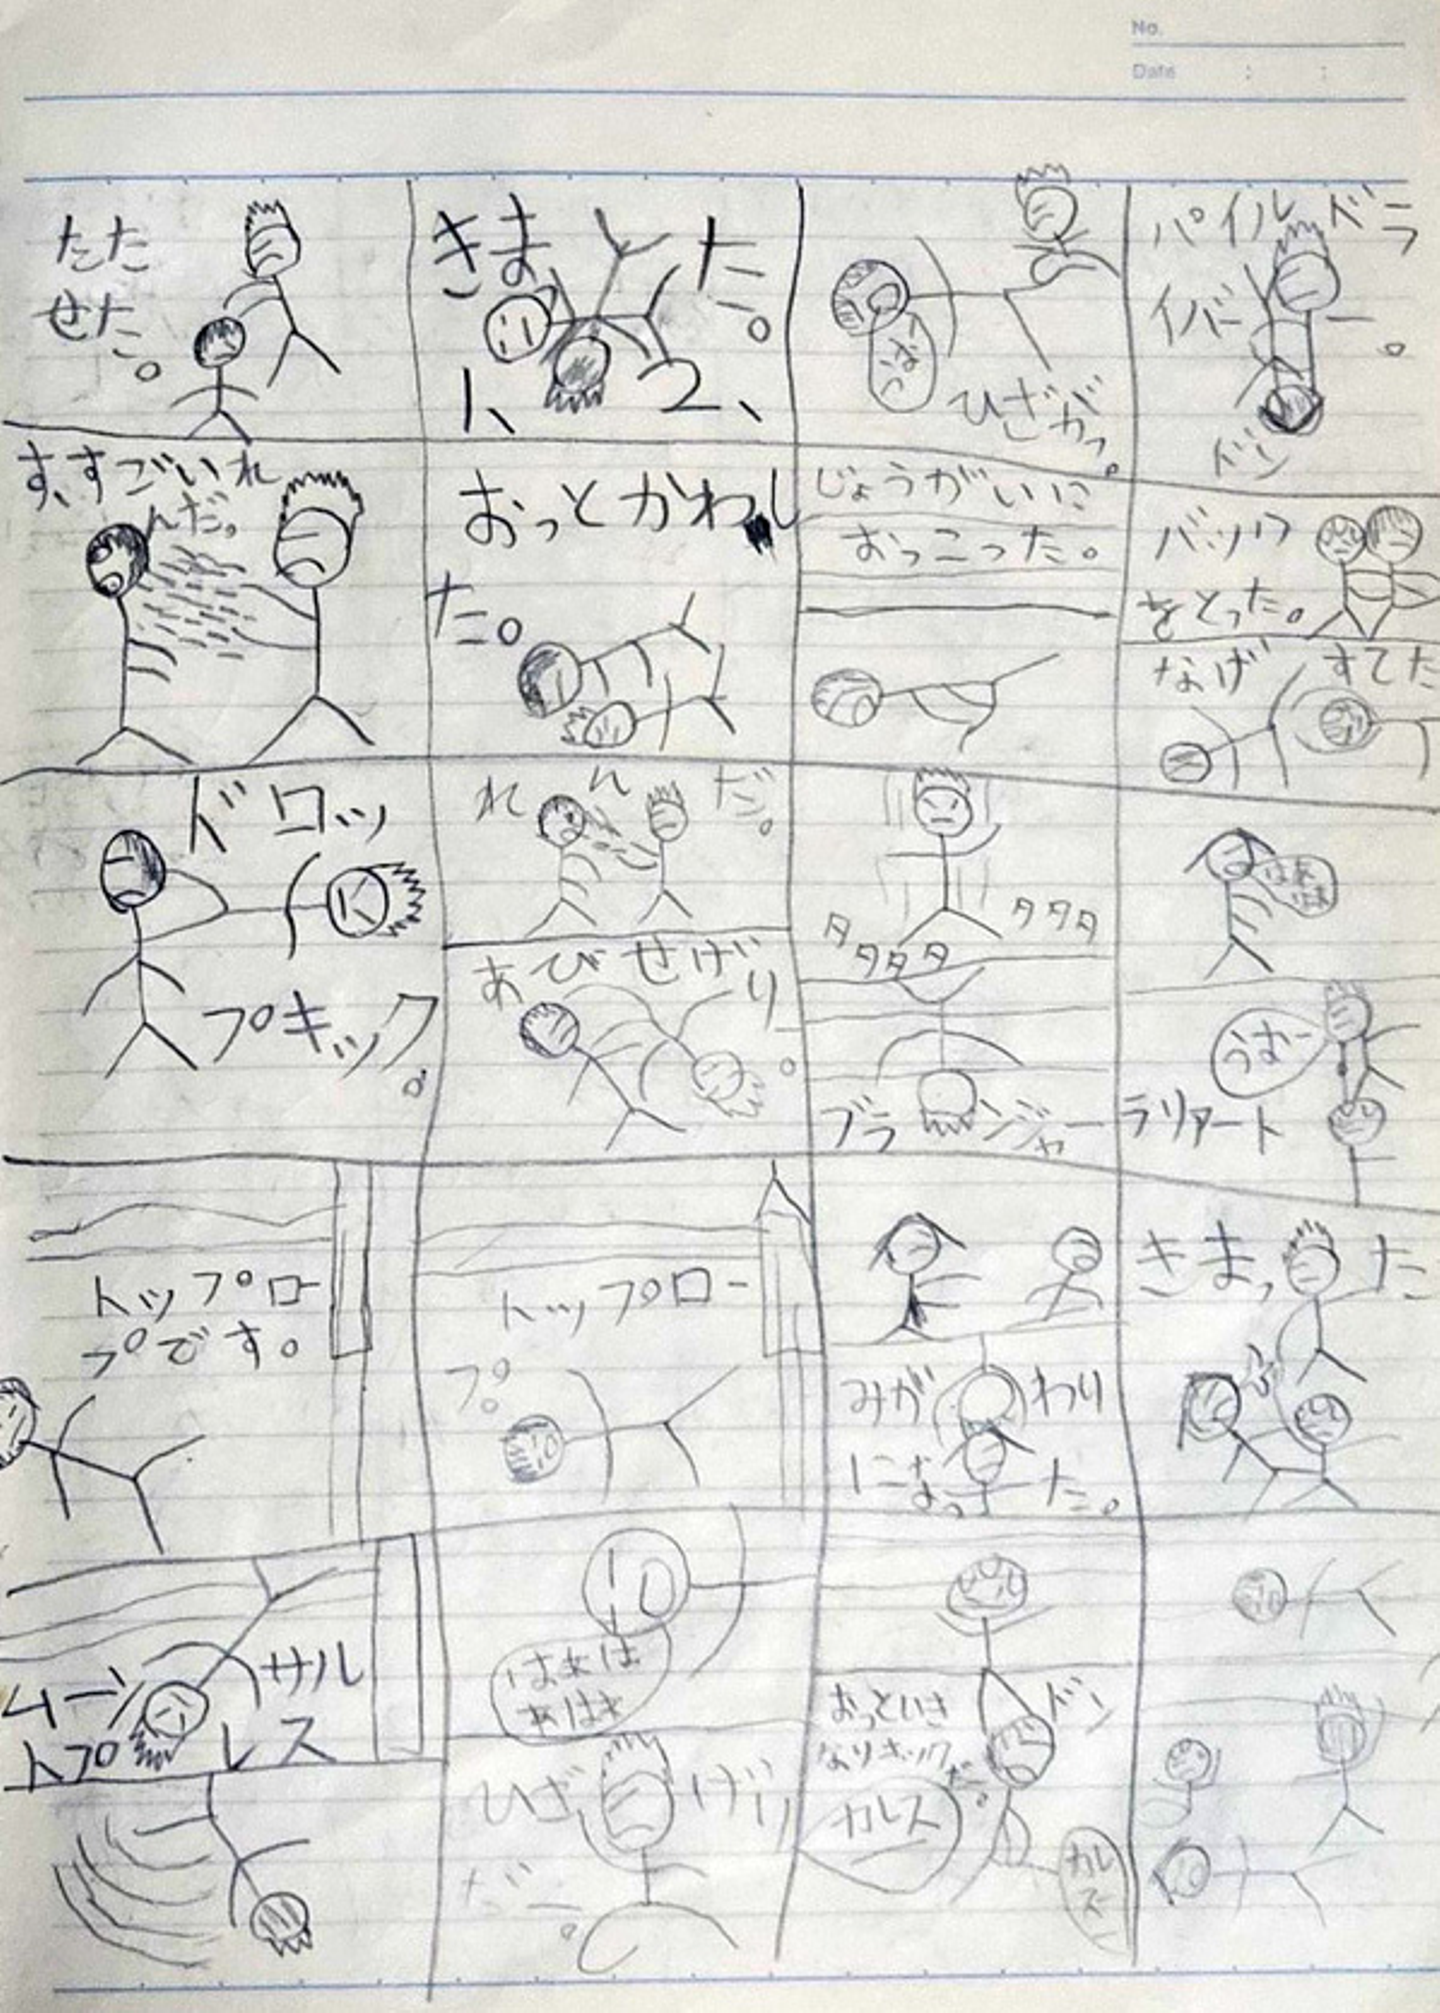 No.
Date
パイルドラ
イバー。
ドン
バック
をとった。
なげすてた
はあ
はあ
うおー
ラリアート
きまった
ひざがっ。
じょうがいに
おっこった。
タタタタ
タタタ
ブランジャー
みがわり
になった。
おっといき
なりキック
だ。
ドン
カレス
カレ
スー
きまった。
1、2、
おっとかわし
た。
れんだ。
あびせげり。
トップロー
プ。
はぁは
ぁはぁ
ひざげり
だー。
たた
せた。
す、すごいれ
んだ。
ドロッ
プキック。
トップロー
プです。
ムーンサル
トプレス